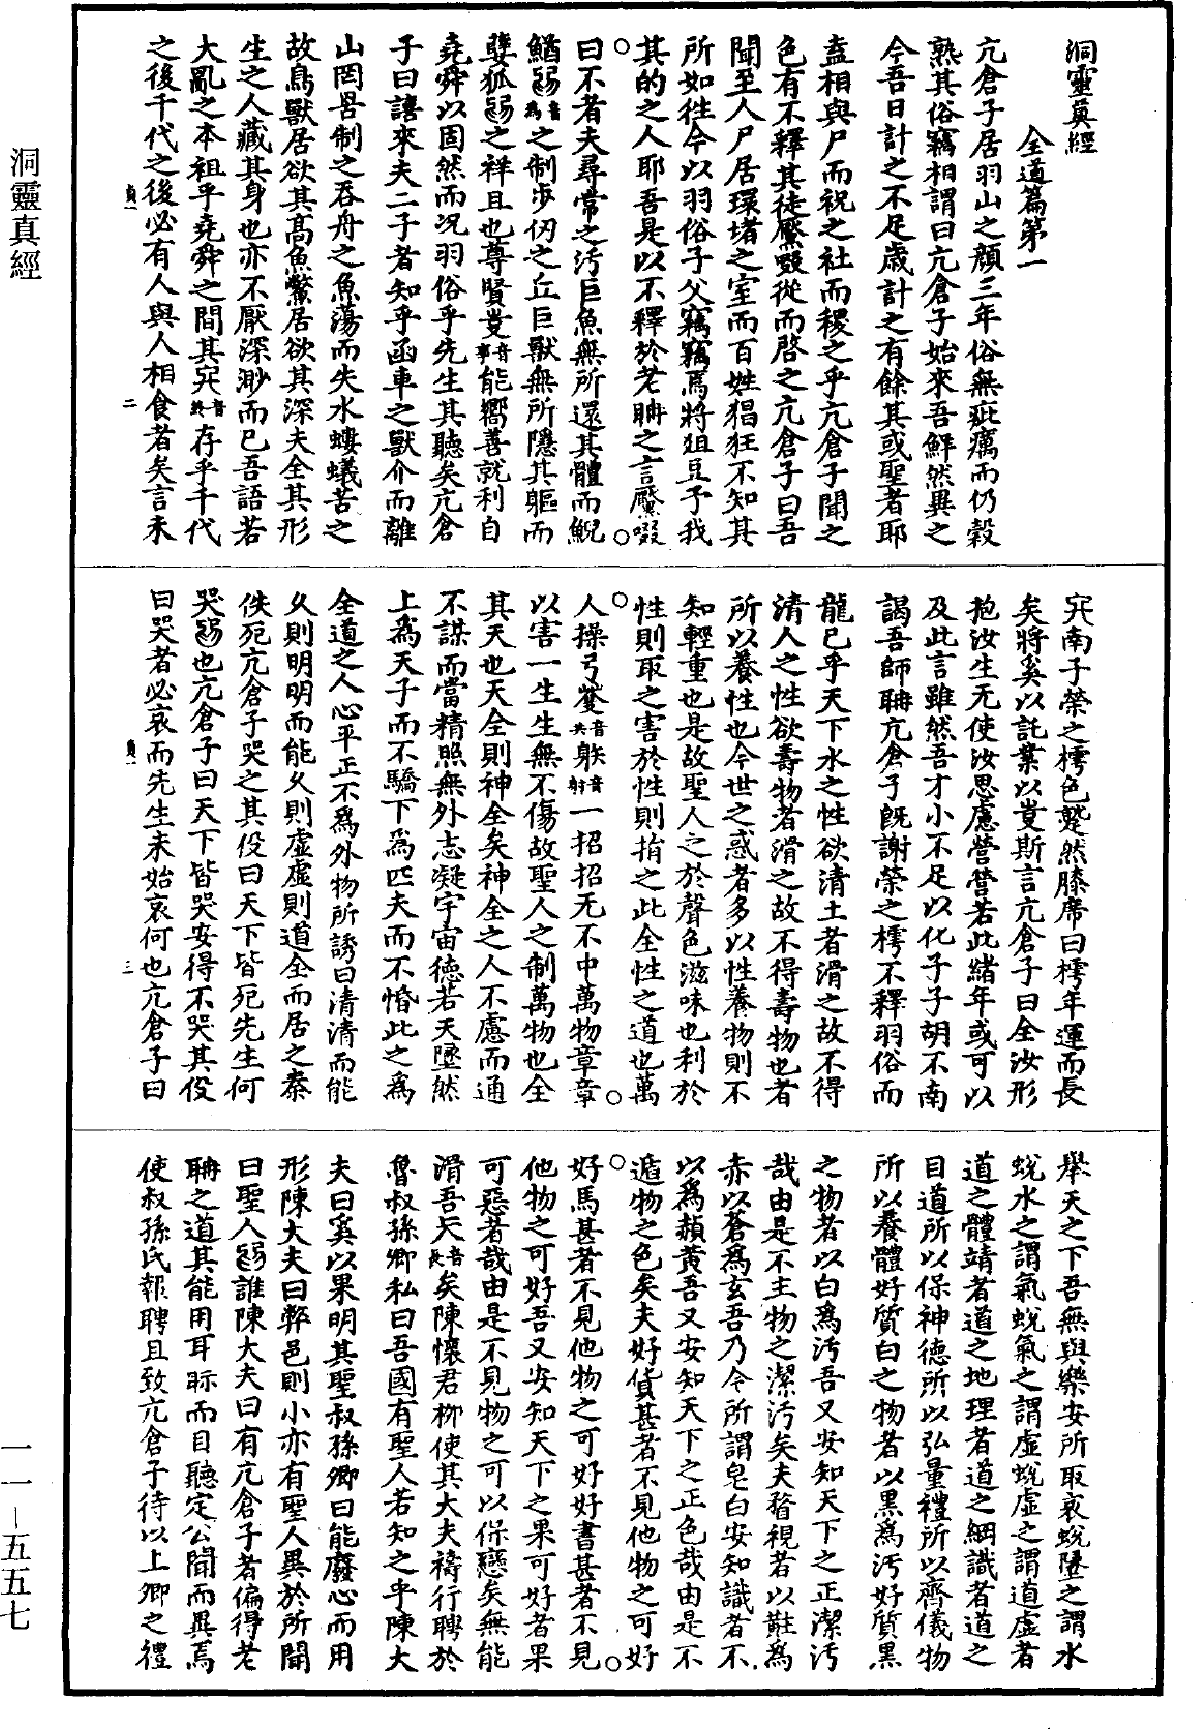 洞靈真經
全道篇第一
亢倉子居羽山之顏三年俗無疵癘而仍穀
熟其俗竊相謂曰亢倉子始來吾鮮然異之
今吾日計之不足歲計之有餘其或聖者耶
盍相與尸而祝之社而稷之乎亢倉子聞之
色有不釋其徒𪒠啜從而啓之亢倉子曰吾
聞至人尸居環堵之室而百姓猖狂不知其
所如徃今以羽俗子父竊竊焉將俎豆予我
其的之人耶吾是以不釋於老聃之言𪒠啜
曰不者夫尋常之汚巨魚無所還其體而鯢
鰌𢑥音爲之制步仞之丘巨獸無所隱其軀而
㜸狐𢑥之祥且也尊賢叓音事能嚮善就利自
堯舜以固然而况羽俗乎先生其聽矣亢倉
子曰譆來夫二子者知乎函車之獸介而離
山罔罟制之吞舟之魚蕩而失水螻蟻苦之
故鳥獸居欲其高魚鱉居欲其深夫全其形
生之人藏其身也亦不厭深渺而已吾語若
大亂之本祖乎堯舜之間其𠔾音終存乎千代
之後千代之後必有人與人相食者矣言未
𠔾南子榮之樗色蹵然膝席曰樗年運而長
矣將奚以託業以叓斯言亢倉子曰全汝形
抱汝生无使汝思慮營營若此緒年或可以
及此言雖然吾才小不足以化子子胡不南
謁吾師聃亢倉子旣謝榮之樗不釋羽俗而
龍已乎天下水之性欲清土者滑之故不得
清人之性欲壽物者滑之故不得壽物也者
所以養性也今世之惑者多以性養物則不
知輕重也是故聖人之於聲色滋味也利於
性則取之害於性則捐之此全性之道也萬
人操弓𠔏音共䠶音射一招招无不中萬物章章
以害一生生無不傷故聖人之制萬物也全
其天也天全則神全矣神全之人不慮而通
不謀而當精照無外志凝宇宙德若天墬然
上爲天子而不驕下爲匹夫而不惛此之爲
全道之人心平正不爲外物所誘曰清清而能
久則明明而能久則虛虛則道全而居之秦
佚死亢倉子哭之其役曰天下皆死先生何
哭𢑥也亢倉子曰天下皆哭安得不哭其役
曰哭者必哀而先生未始哀何也亢倉子曰
舉天之下吾無與樂安所取哀蛻墬之謂水
蛻水之謂氣蛻氣之謂虛蛻虛之謂道虛者
道之體靖者道之地理者道之綱識者道之
目道所以保神德所以弘量禮所以齊儀物
所以養體好質白之物者以黑爲汚好質黑
之物者以白爲汚吾又安知天下之正潔汚
哉由是不主物之潔汚矣夫瞀視者以黈爲
赤以蒼爲玄吾乃今所謂皂白安知識者不
以爲赬黃吾又安知天下之正色哉由是不
遁物之色矣夫好貨甚者不見他物之可好
好馬甚者不見他物之可好好書甚者不見
他物之可好吾又安知天下之果可好者果
可惡者哉由是不見物之可以保戀矣無能
滑吾兂音長矣陳懷君栁使其大夫禱行聘於
魯叔孫卿私曰吾國有聖人若知之乎陳大
夫曰奚以果明其聖叔孫卿曰能廢心而用
形陳大夫曰弊邑則小亦有聖人異於所聞
曰聖人𢑥誰陳大夫曰有亢倉子者偏得老
聃之道其能用耳眎而目聽定公聞而異焉
使叔孫氏報聘且致亢倉子待以上卿之禮
貞一
二
貞一
三
洞靈真經
一一－五五七